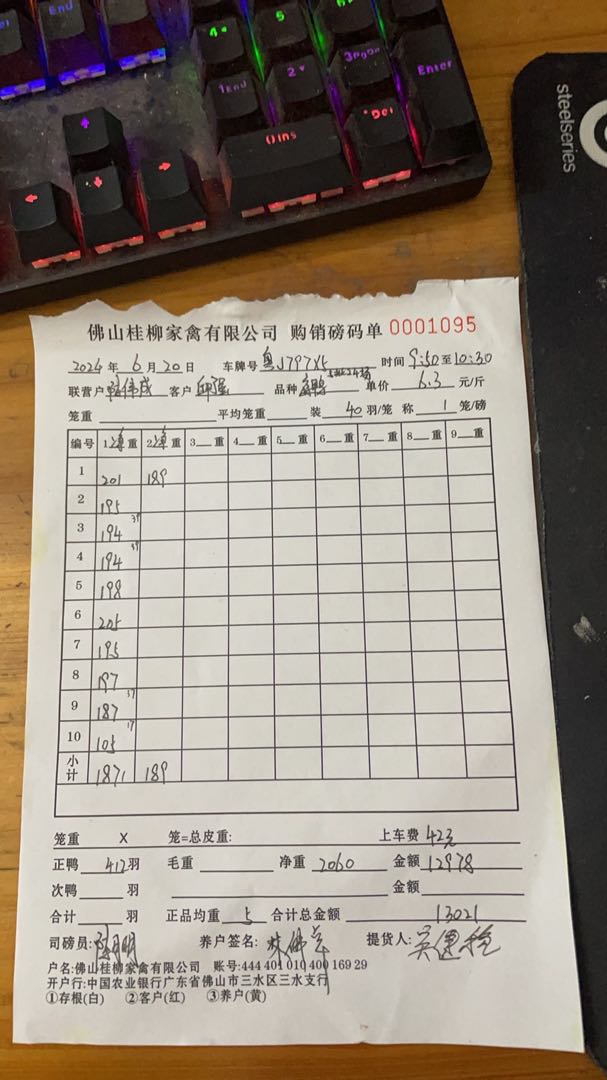 End
4
5
6
1End
2
3PgDn
Enter
0Ins
Del
steelseries
佛山桂柳家禽有限公司 购销磅码单 0001095
2024年 6月 20日 车牌号 粤J797X5 时间 9:50至10:30
联营户 客户 品种 单价 6.3 元/斤
笼重 平均笼重 装 40 羽/笼 称 1 笼/磅
编号 1净重 2净重 3 重 4 重 5 重 6 重 7 重 8 重 9 重
1 201 189
2 195
3 194 39
4 194 39
5 198
6 205
7 195
8 197
9 187 37
10 105 17
小计 1871 189
笼重 X 笼=总皮重: 上车费 42元
正鸭 412羽 毛重 净重 2060 金额 12978
次鸭 羽 金额
合计 羽 正品均重 5 合计总金额 13021
司磅员: 养户签名: 提货人:
户名:佛山桂柳家禽有限公司 账号:444 401 010 400 169 29
开户行:中国农业银行广东省佛山市三水区三水支行
①存根(白) ②客户(红) ③养户(黄)